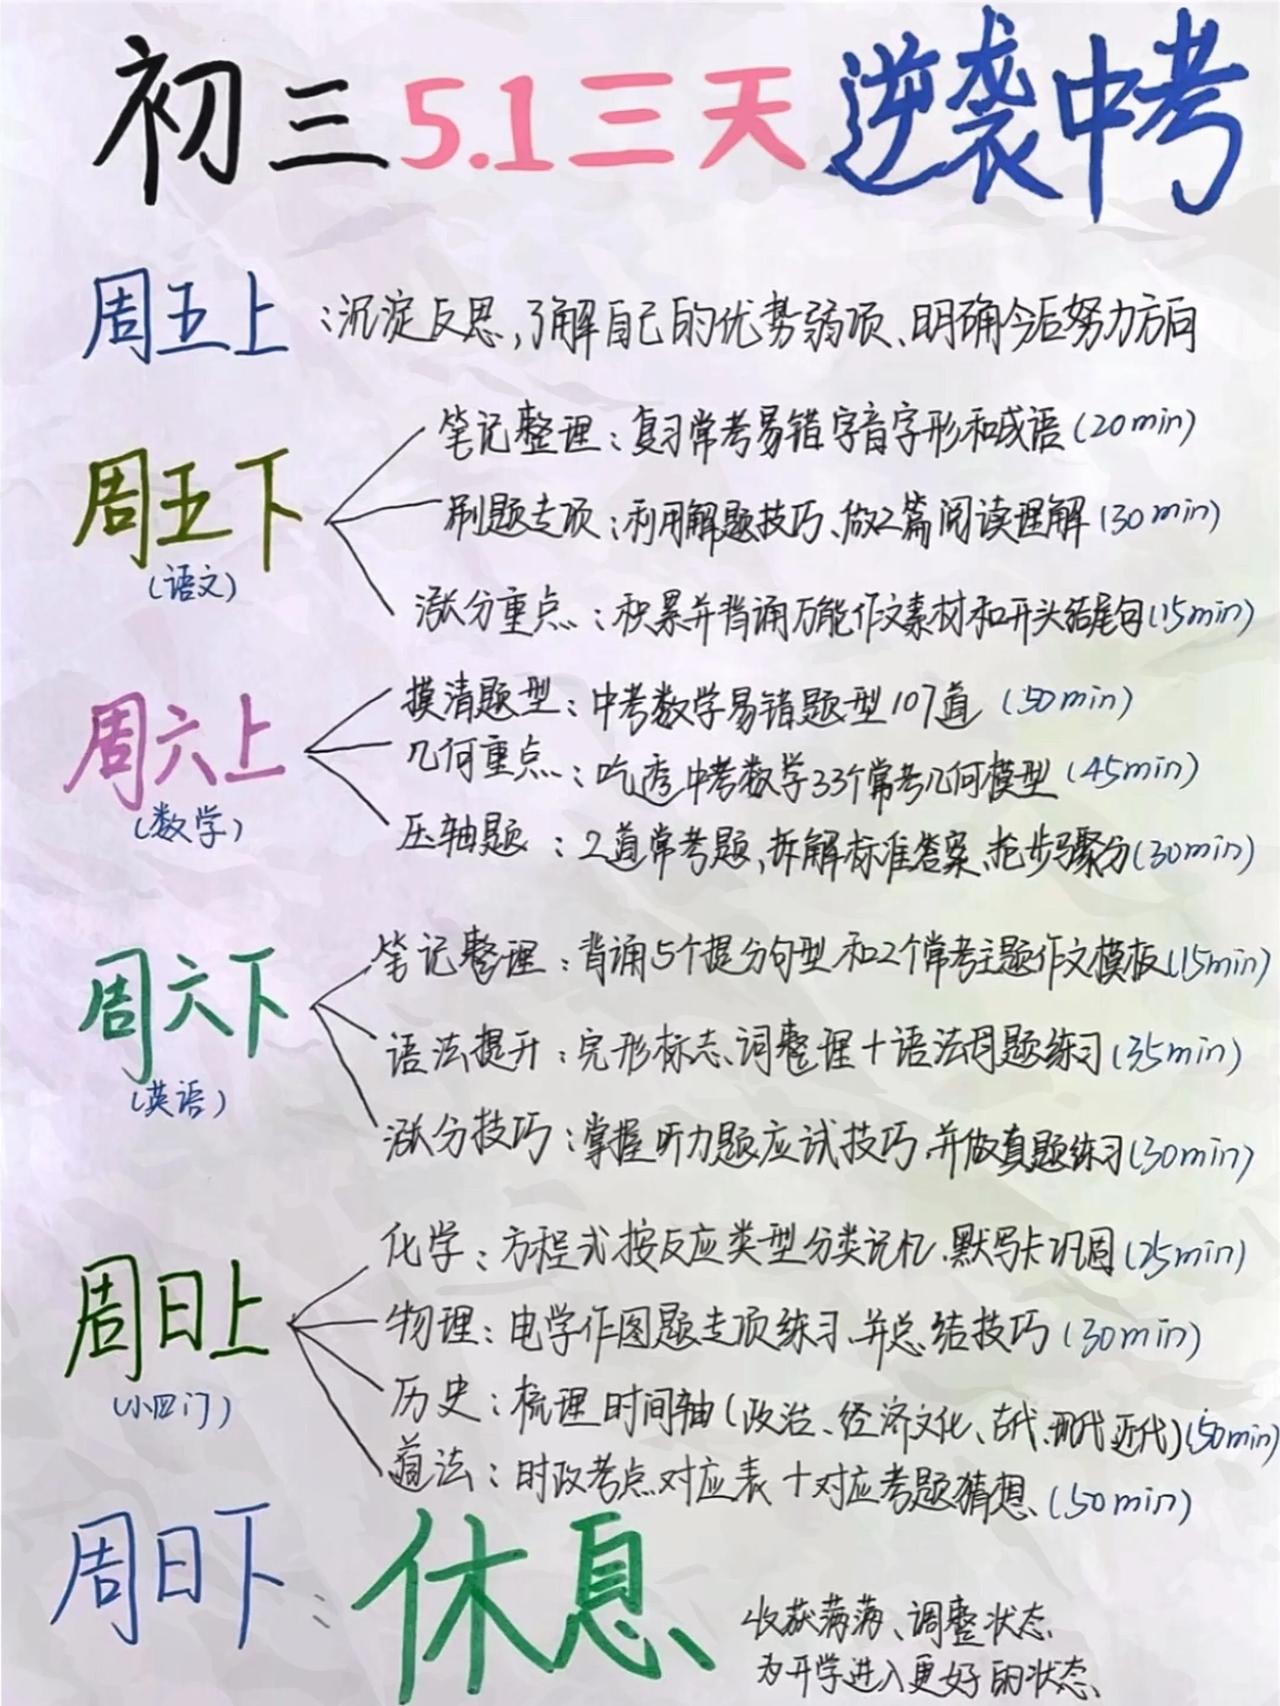 初三5.1三天逆袭中考
周五上：沉淀反思,了解自己的优势弱项、明确今后努力方向
笔记整理：复习常考易错字音字形和成语(20min)
周五下
刷题专项：利用解题技巧、做2篇阅读理解(30min)
(语文)
涨分重点：积累并背诵万能作文素材和开头结尾句(15min)
摸清题型：中考数学易错题型107道(50min)
周六上
几何重点：吃透中考数学33个常考几何模型(45min)
(数学)
压轴题：2道常考题,拆解标准答案、抢步骤分(30min)
笔记整理：背诵5个提分句型和2个常考主题作文模板(15min)
周六下
语法提升：完形标志、词整理+语法母题练习(35min)
(英语)
涨分技巧：掌握听力题应试技巧、并做真题练习(30min)
化学：方程式按反应类型分类记忆、默写卡巩固(25min)
周日上
物理：电学作图题专项练习、并总结技巧(30min)
(小四门)
历史：梳理时间轴(政治、经济文化、古代、现代近代)(50min)
道法：时政考点对应表+对应考题猜想、(50min)
周日下：休息、
收获满满、调整状态、
为开学进入更好的状态、